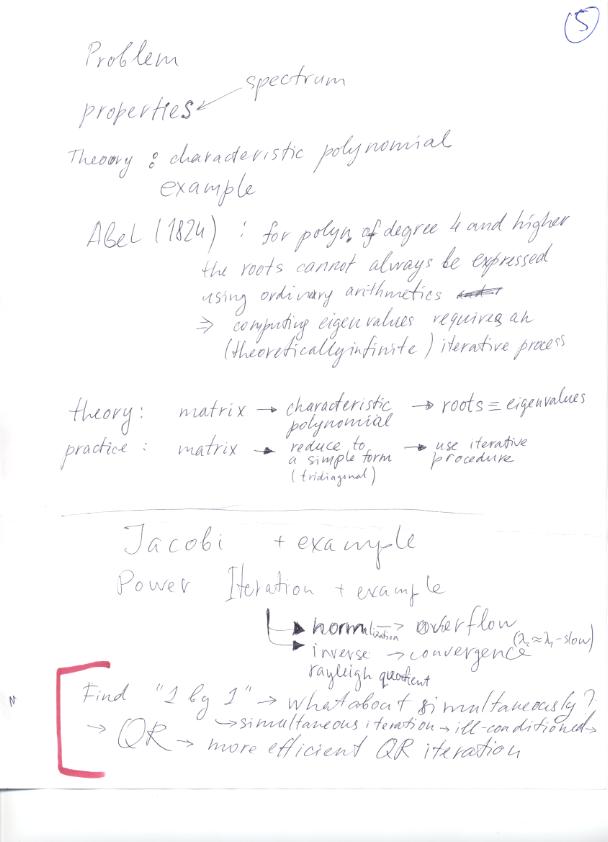 5
Problem
spectrum
properties
Theoory : characteristic polynomial
example
Abel (1824) : for polyn. of degree 4 and higher
the roots cannot always be expressed
using ordinary arithmetics
⇒ computing eigenvalues requires an
(theoretically infinite) iterative process
theory: matrix → characteristic polynomial → roots = eigenvalues
practice: matrix → reduce to a simple form (tridiagonal) → use iterative procedure
Jacobi + example
Power Iteration + example
normalization → overflow
inverse → convergence (λ₂≈λ₁-slow)
rayleigh quotient
Find "1 by 1" → what about simultaneously?
→ simultaneous iteration → ill-conditioned →
→ QR → more efficient QR iteration